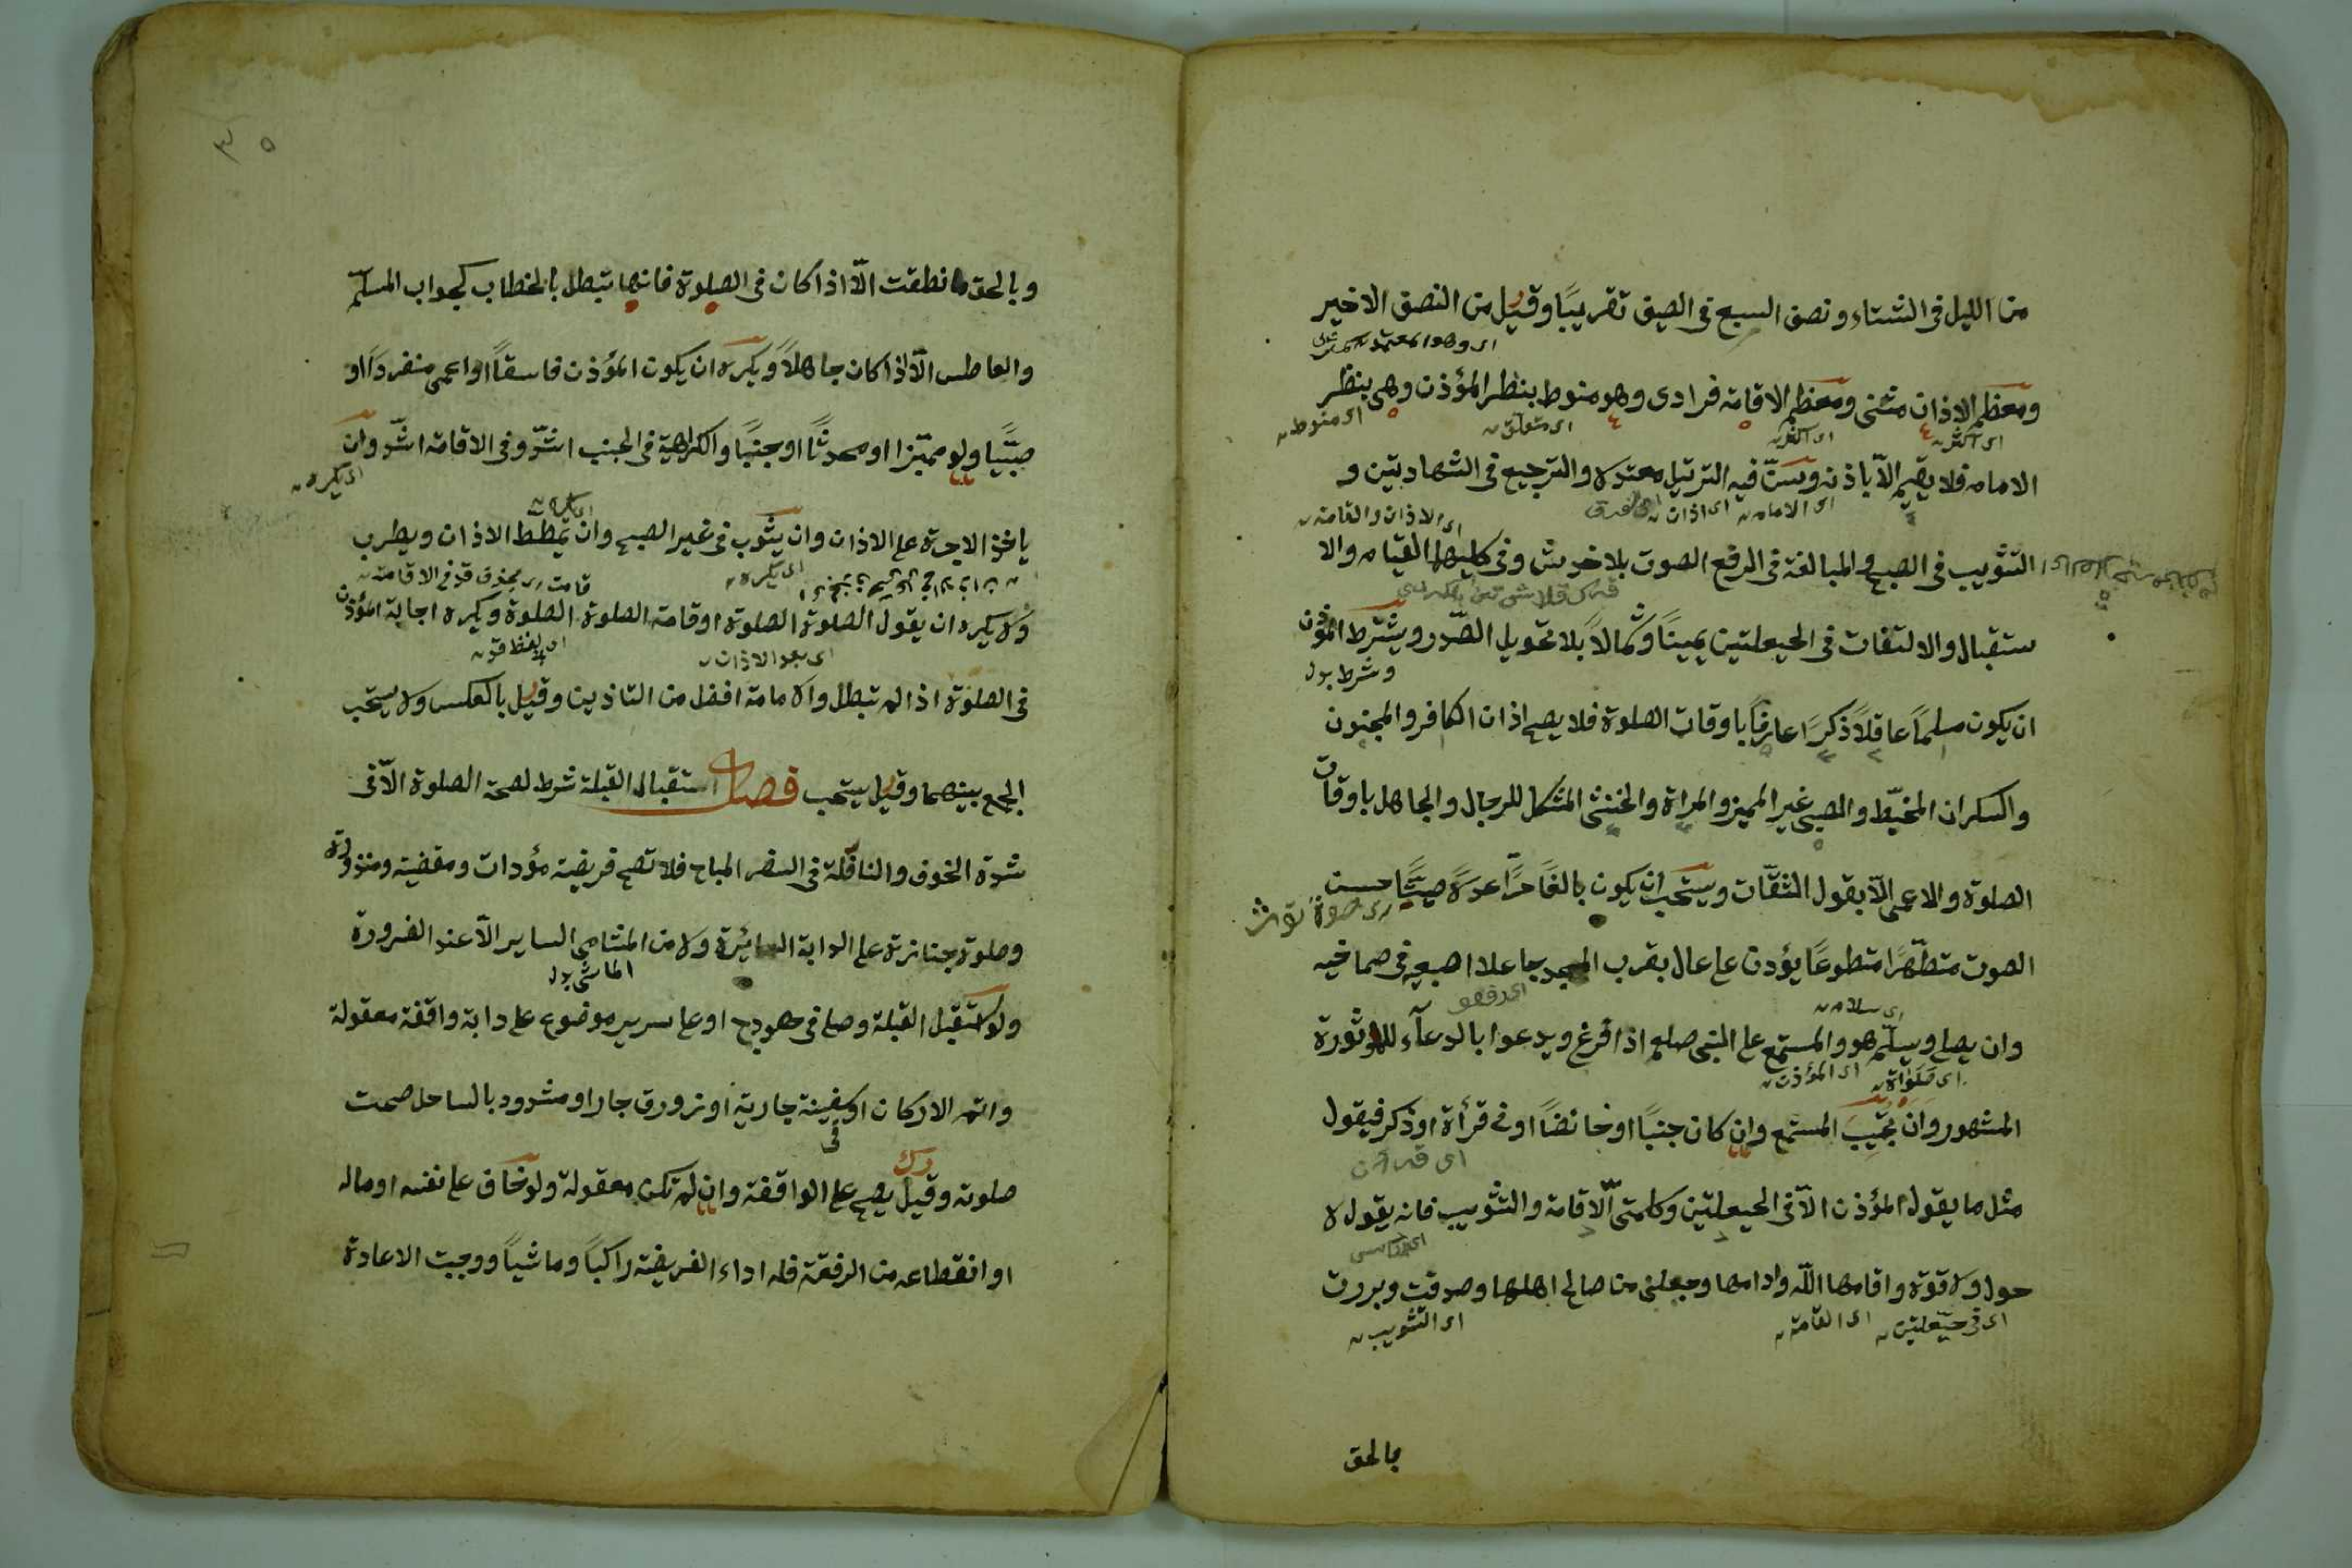 من الليل فى الشتاء ونصف السبع فى الصيف تقريبًا وقيل من النصف الاخير
اى وهو المعتمد
ومعظم الاذان مثنى ومعظم الاقامة فرادى وهو منوط بنظر المؤذن وهى بنظر
اى اكثر اى اكثر اى متعلق اى منوط
الامامه فلا يقيم الّا باذنه ويسنّ فيه الترتيل معتدلا والترجيع فى الشهادتين و
اى الامامه اى اذان اى الاذان والقامة
التثويب فى الصبح والمبالغة فى الرفع الصوت بلا خدش وفى كليهما القيامه والا
ستقبال والالتفات فى الحيعلتين يمينًا وشمالًا بلا تحويل الصّدر ويشترط المؤذن
وشرط بول
ان يكون مسلمًا عاقلًا ذكرًا عارفًا باوقات الصلوة فلا يصح اذان الكافر والمجنون
والسكران المخبّط والصبى غير المميز والمراة والخنثى المشكل للرجال والجاهل باوقات
الصلوة والاعمى الّا بقول الثقّات ويستحب ان يكون بالغًا حرًّا عدلًا صيّتًا حسن
الصوت متطهّرًا متطوعًا يؤذن على عال بقرب المسجد جاعلا اصبعيه فى صماخيه
اى سلامه
وان يصلى ويسلّم هو والمستمع على النبى صلعم اذا فرغ ويدعوا بالدعآء للماثورة
اى صلواة اى المؤذن
المشهور وان يجيبَ المستمع وان كان جنبًا او حائضًا او فى قرأة او ذكر فيقول
اى قرآن
مثل ما يقول المؤذن الّا فى الحيعلتين وكلمتى الّاقامة والتثويب فانه يقول لا
حول ولا قوة واقامها اللّه وادامها وجعلنى من صالح اهلها وصدقت وبررت
اى فى حيّعلتين اى القامة اى التثويب
بالحق
٣٥
وبالحق ما نطقت الّا اذا كان فى الصلوة فانها تبطل بالخطاب كجواب المسلّم
والعاطس الّا اذا كان جاهلًا ويكره ان يكون المؤذن فاسقًا او اعمى منفردًا او
صبيًّا ولو مميّزا او محدثًا او جنبًا والكراهية فى الجنب اشدّ وفى الاقامة اشدّ وان
اى يكره
اى يكره
ياخذ الاجرة على الاذان وان يثوّب فى غير الصبح وان يمطط الاذان ويطرب
اى يكره
قامت بحذف قد فى الاقامة
ولا يكره ان يقول الصلوة الصلوة او قامة الصلوة الصلوة ويكره اجابة المؤذن
اى بعد الاذان اى لفظ قد
فى الصلوة اذا لم تبطل والامامة افضل من التاذين وقيل بالعكس ولا يستحب
الجمع بينهما وقيل يستحب فصل استقبال القبلة شرط لصحة الصلوة الّا فى
شدة الخوف والنافلة فى السفر المباح فلا تصح فريضة مؤدات ومقضية ومنذورة
وصلوة جنازة على الدابة السائرة ولا من المشامى الساير الّا عند الضرورة
الماشى بدل
ولو استقبل القبلة وصلى فى هودج او على سرير موضوع على دابة واقفة معقولة
واتم الاركان او سفينة جارية او زورق جار او مشدود بالساحل صحت
فى
صلوته وقيل يصح على الواقفة وان لم تكن معقولة ولو خاف على نفسه او ماله
او انقطاعه من الرفقة فله اداء الفريضة راكبًا وماشيًا ووجبت الاعادة